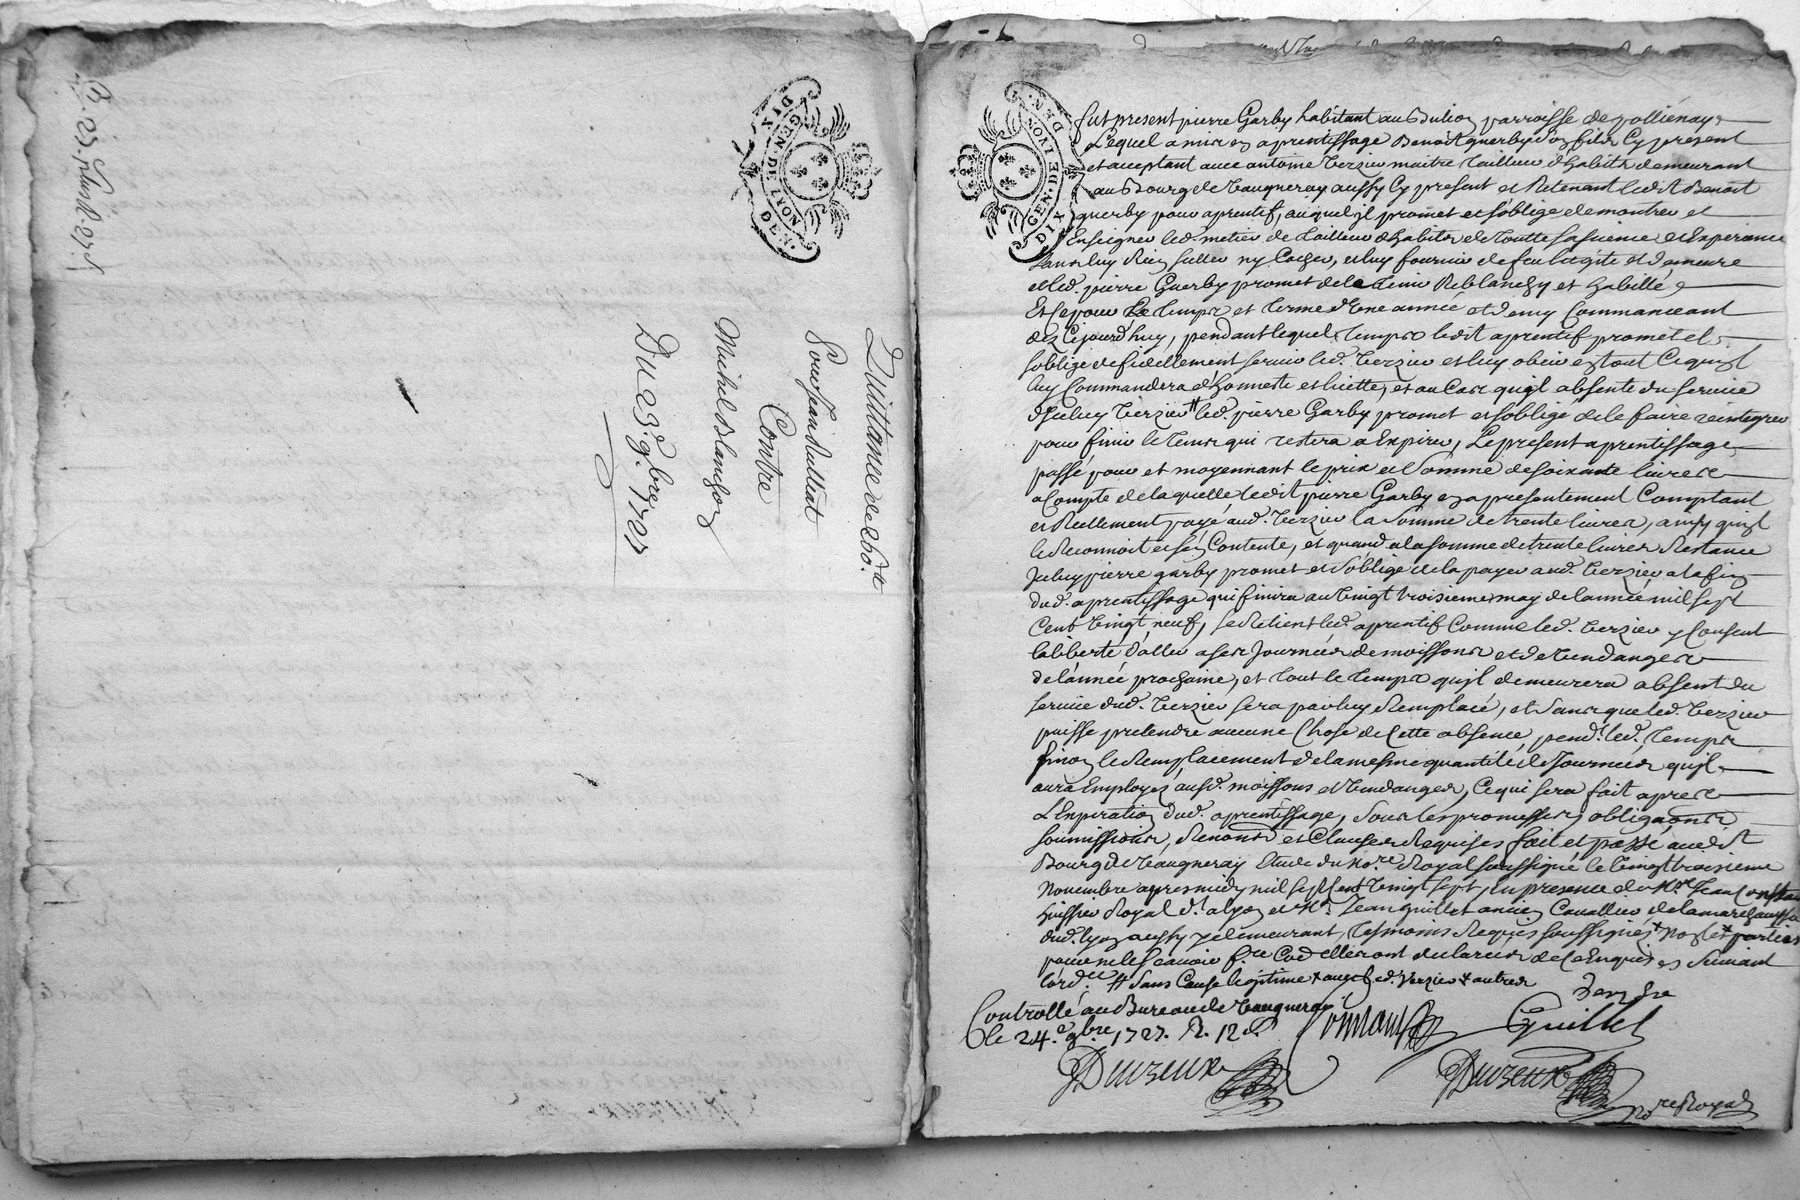 GEN. DE LYON
DIX DEN.
Quittance de 260 ₶
Pour Jean
Contre
Michel Blanchon
Du 23e 9bre 1727
GEN. DE LYON
DIX DEN.
fut present pierre Garby habitant au parroisse de pollienay
Lequel a mis en aprentissage Benoist querby son fils Cy present
et acceptant avec antoine Verzieu maitre tailleur d'habits demeurant
au Bourg de Vaugneray aussy Cy present et Retenant ledit Benoit
querby pour aprentif, auquel jl promet et s'oblige de montrer et
Enseigner led. metier de tailleur d'habits de toutte sa science et Experience
sans luy Rien receller ny Cacher, et luy fournir de feu lit gite et demeure
et led. pierre Guerby promet de le tenir Reblanchy et habillé
Et Ce pour Le temps et terme d'Une année et demy Commanceant
dès Cejourd'huy, pendant lequel temps ledit aprentif promet et
s'oblige de fidellement servir led. Verzieu et luy obeir en tout Ce qu'jl
luy Commandera d'honneste et licitte, et au Cas qu'jl absente du service
d'Iceluy Verzieu # led. pierre Garby promet et s'oblige de le faire reintegrer
pour finir le tems qui restera a Expirer, Le present aprentissage
passé pour et moyennant le prix et Somme de soixante livres
a Compte de laquelle ledit pierre Garby en a presentement Comptant
et Reellement payé aud. Verzieu la Somme de trente livres, ainsy qu'jl
le Reconnoit et s'en Contente, et quand a la somme de trente livres Restante
Jceluy pierre garby promet et s'oblige de la payer aud. Verzieu a la fin
dud. aprentissage qui finira au Vingt troisieme may de l'année mil sept
Cent Vingt neuf, se Retient led. aprentif Comme led. Verzieu y Consent
la liberté d'aller a ses Journées de moissons et de Vendanges
de l'année prochaine, et tout le temps qu'jl demeurera absent du
service dud. Verzieu sera par luy Remplacé, et sans que led. Verzieu
puisse pretendre aucune Chose de Cette absence, pend.t led. temps
sinon le Remplacement de la mesme quantité de Journées qu'jl
aura Employez ausd. moissons et Vendanges, Ce qui sera fait apres
L'Expiration dud. aprentissage, sous les promesses, obligaons
soumissions, Renons et Clauses Requises fait et passé audit
Bourg de Vaugneray Etude du No.re Royal soussigné le Vingt troisieme
Novembre apres midy mil sept Cent Vingt sept, En presence de Me Jean
huissier Royal d.t a lyon et Sr. Jean guillet ancien Cavallier de la marechaussée
dud. lyon aussy y demeurant, tesmoins Requis soussignés + Non les + parties
pour ne le scavoir f.re Co'e elles ont declaré de Ce Enquis et Suivant
l'ord.ce # Sans Cause legitime + avec led. Verzieu + autres
Controllé au Bureau de Vaugneray
le 24.e 9bre 1727. R. 12 s.
Guillet
Duvzeux
Duvzeux
No.re Royal